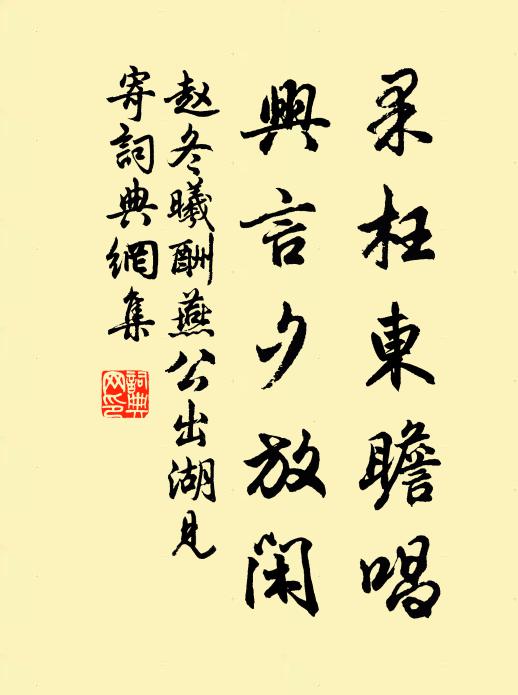 果枉東瞻唱
興言夕放閑
赵冬曦酬燕公出湖見
寄詞典網集
詞典
网印